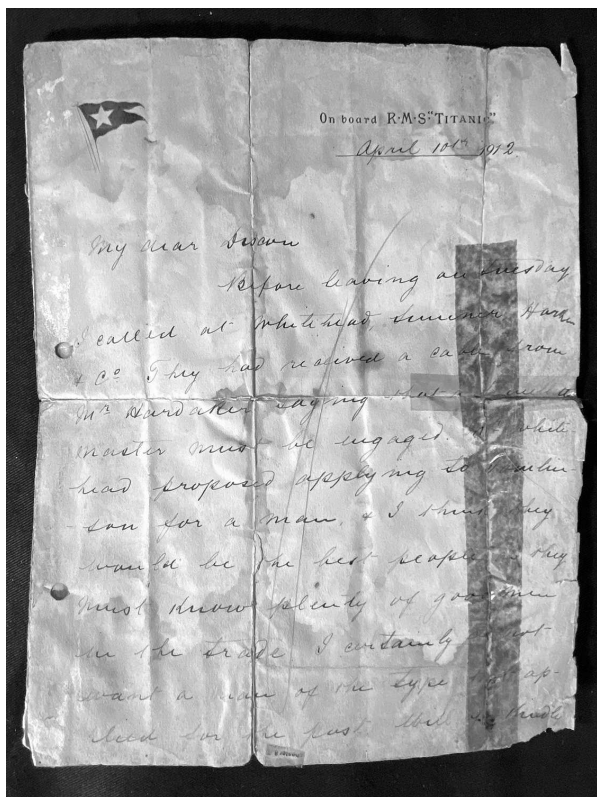 On board R·M·S "TITANI
April 10th 1912.
My dear
Before leaving on Tuesday
I called at Whitehead Sumner Harker
& Co. They had received a cable from
Mr Hardaker saying that a
master must be engaged. White-
head proposed applying to
son for a man, & I think they
would be the best people they
must know plenty of good men
in the trade I certainly not
want a man of the type ap-
plied for the post Will kindly